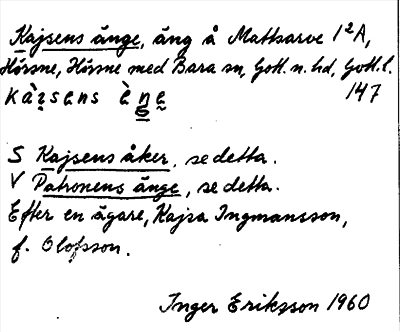 Kajsens änge, äng å Mattsarve 1²A,
Hörsne, Hörsne med Bara sn, Gotl. n. hd, Gotl. l.
147
S Kajsens åker, se detta.
V Patronens änge, se detta.
Efter en ägare, Kajsa Ingmansson,
f. Olofsson.
Inger Eriksson 1960